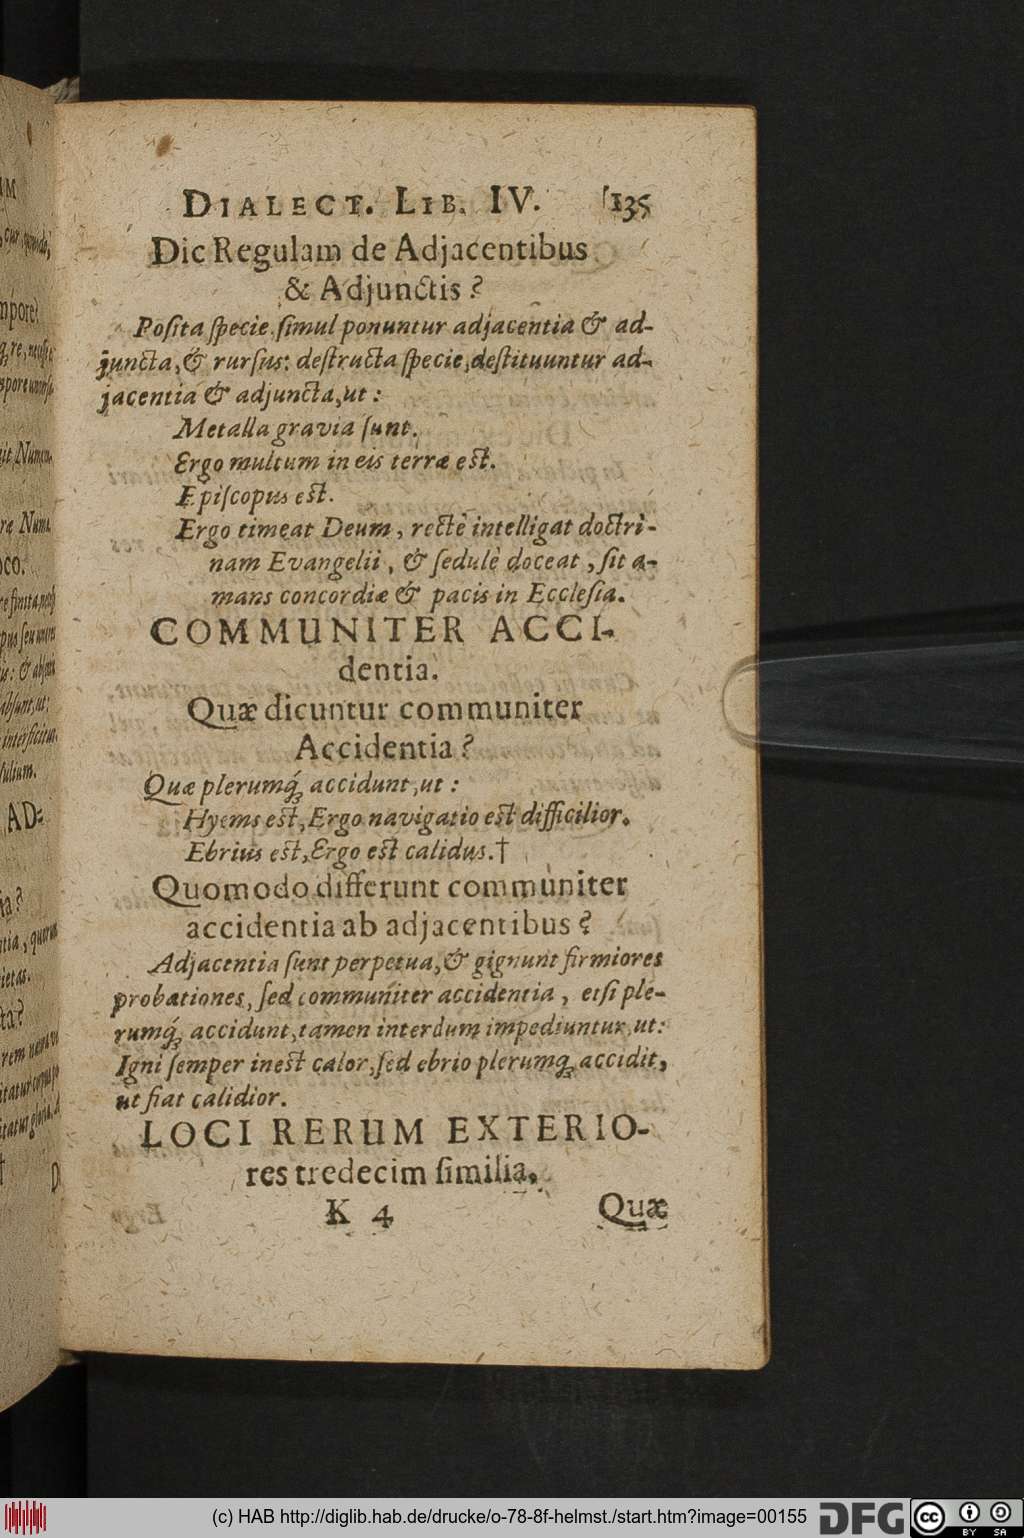 DIALECT. LIB. IV. 135
Dic Regulam de Adjacentibus
& Adjunctis?
Poſita ſpecie ſimul ponuntur adjacentia & ad-
juncta, & rurſus: deſtructa ſpecie, deſtituuntur ad-
jacentia & adjuncta, ut:
Metalla gravia ſunt.
Ergo multum in eis terræ eſt.
Epiſcopus eſt.
Ergo timeat Deum, rectè intelligat doctri-
nam Evangelii, & ſedulè doceat, ſit a-
mans concordiæ & pacis in Eccleſia.
COMMUNITER ACCI-
dentia.
Quæ dicuntur communiter
Accidentia?
Quæ plerumq́ꝫ accidunt, ut:
Hyems eſt, Ergo navigatio eſt difficilior.
Ebrius eſt, Ergo eſt calidus.†
Quomodo differunt communiter
accidentia ab adjacentibus?
Adjacentia ſunt perpetua, & gignunt firmiores
probationes, ſed communiter accidentia, etſi ple-
rumq́ꝫ accidunt, tamen interdum impediuntur, ut:
Igni ſemper ineſt calor, ſed ebrio plerumqꝫ accidit,
ut fiat calidior.
LOCI RERUM EXTERIO-
res tredecim ſimilia.
K 4 Quæ
(c) HAB http://diglib.hab.de/drucke/o-78-8f-helmst./start.htm?image=00155
DFG
cc BY SA